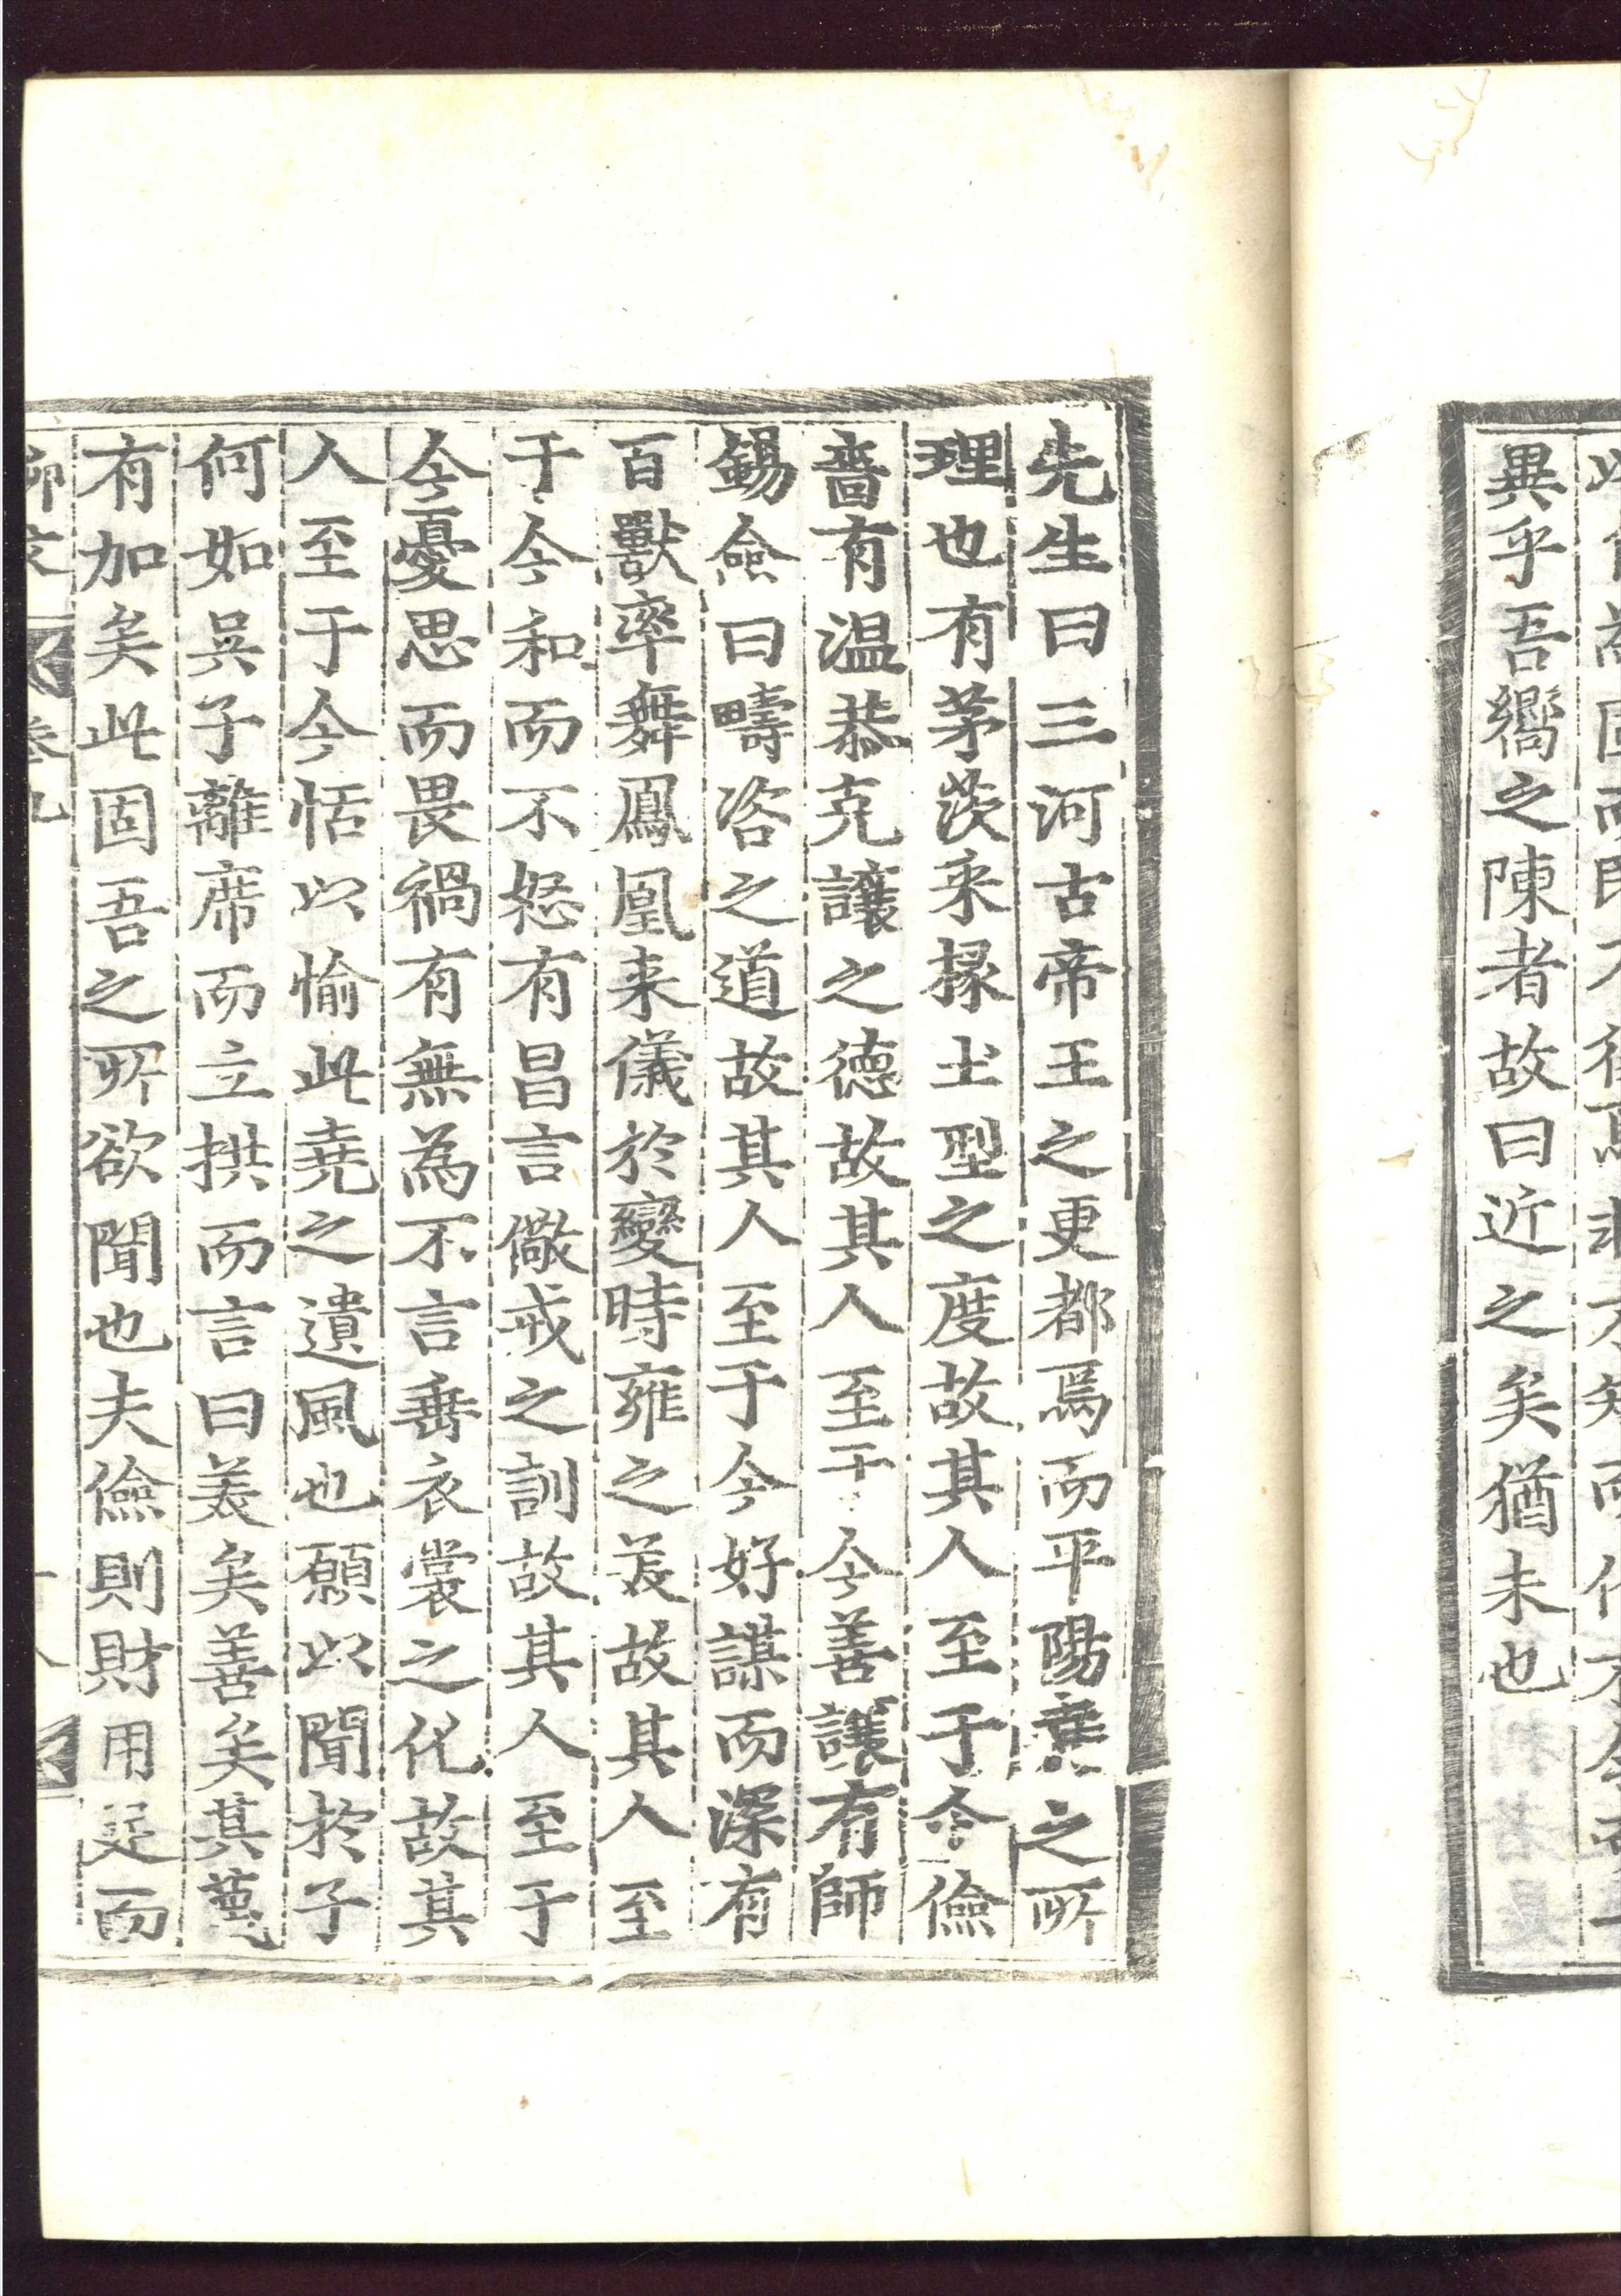 異乎吾嚮之陳者故曰近之矣猶未也
先生曰三河古帝王之更都焉而平陽堯之所
理也有茅茨采椽土型之度故其人至于今儉
嗇有温恭克讓之德故其人至于今善讓有師
錫僉曰疇咨之道故其人至于今好謀而深有
百獸率舞鳳凰来儀於變時雍之美故其人至
于今和而不怒有昌言儆戒之訓故其人至于
今憂思而畏禍有無為不言垂衣裳之化故其
人至于今恬以愉此堯之遺風也願以聞於子
何如吳子離席而立拱而言曰美矣善矣其蔑
有加矣此固吾之所欲聞也夫儉則財用足而
柳文 卷九